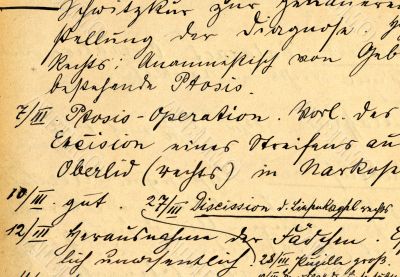 Schwitzkur zur genaueren
stellung der Diagnose.
Rechts: Anamnestisch von Geb
bestehende Ptosis.
7/III. Ptosis-Operation. Vorl. des
Excision eines Streifens au
Oberlid (rechts) in Narkose
10/III. gut. 27/III Discission d. Linsenkapsel rechts
12/III Herausnahme der Fädchen.
lich unwesentlich 28/III Pupille groß.